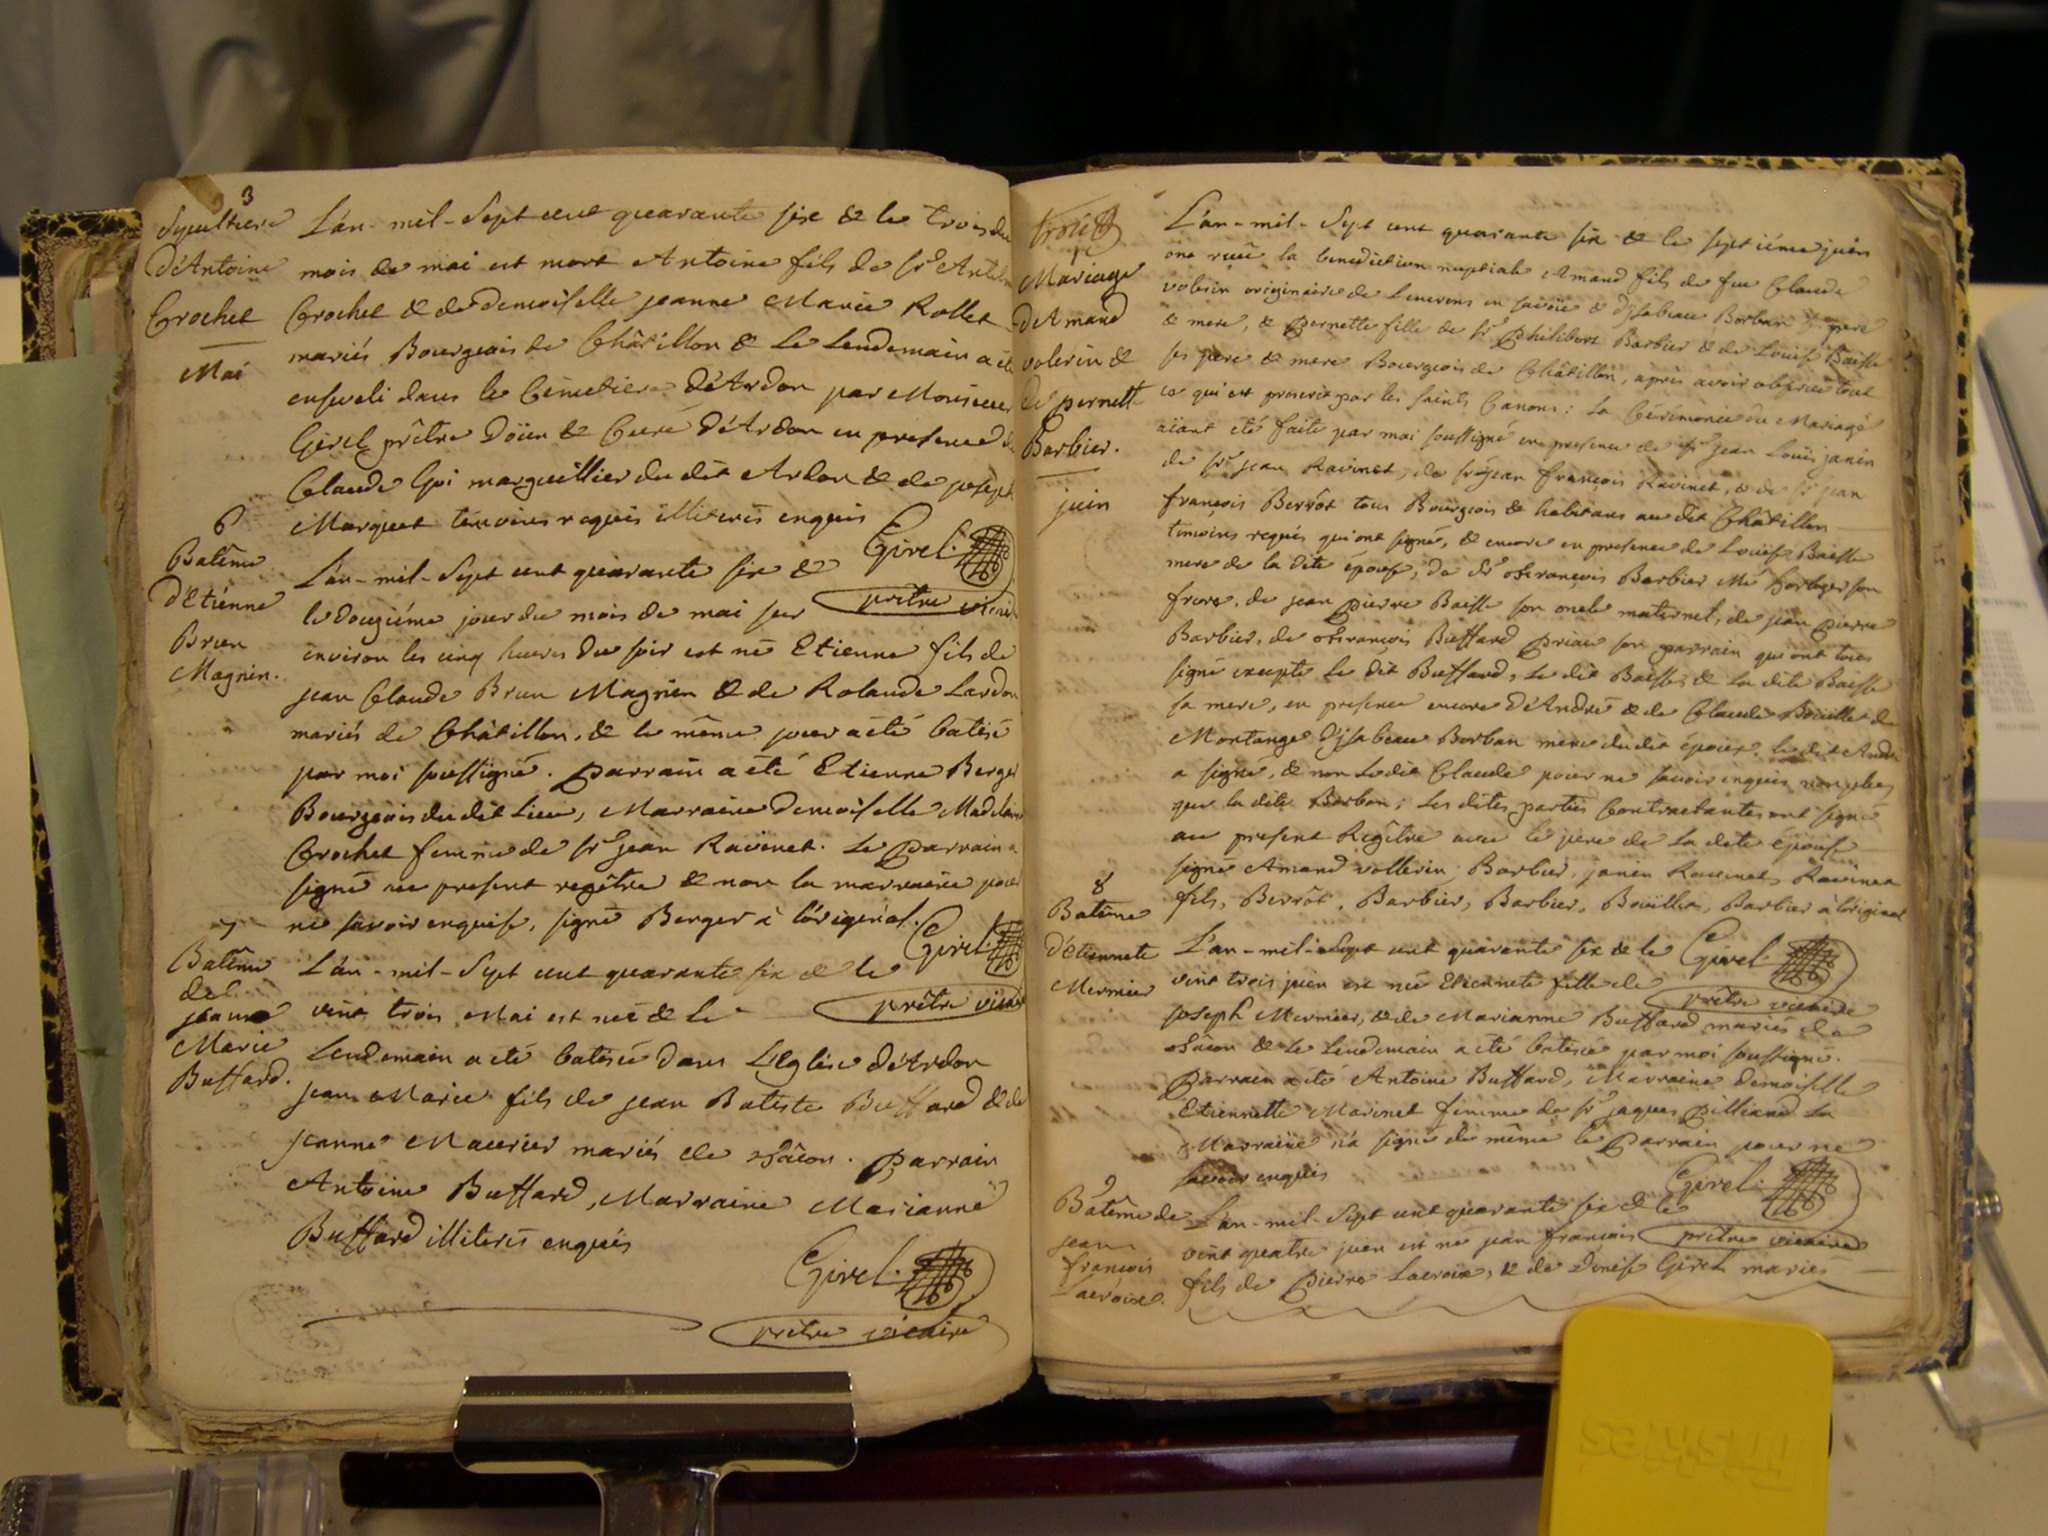 3
Sepulture
d'Antoine
Crochet
Mai
L'an-mil-Sept cent quarante six & le trois du
mois de mai est mort Antoine fils de Sr
Crochet & de demoiselle jeanne Marie Rollet
mariés Bourgeois de Châtillon & Le Lendemain a été
enseveli dans le Cimetiere d'Ardon par Monsieur
Girel prêtre Doïen & Curé d'Ardon en presence de
Claude Goi marguillier du dit Ardon & de joseph
Marquet temoins requis illiterés enquis
Girel.
prêtre vicaire
6
Batême
d'Etiénne
Brun
Magnin.
L'an-mil-Sept cent quarante six &
le douziéme jour du mois de mai sur
environ les cinq heures du soir est né Etienne fils de
jean Claude Brun Magnin & de Rolande Lardon
mariés de Châtillon, & le même jour a été batisé
par moi soussigné. Parrain a été Etienne Berger
Bourgeois du dit Lieu, Marraine demoiselle Madelaine
Crochet femme de Sr jean Ravinet. Le Parrain a
signé au present regître & non la marraine pour
ne savoir enquise, signé Berger à l'original.
Girel.
prêtre vicaire
7
Batême
de
jeanne
Marie
Buffard.
L'an-mil-Sept cent quarante six & le
vint trois Mai est né & le
Lendemain a été batisé dans L'Eglise d'Ardon
jean Marie fils de jean Batiste Buffard & de
jeanne Maurier mariés de Vâcon. Parrain
Antoine Buffard, Marraine Marianne
Buffard illiterés enquis
Girel.
prêtre vicaire
Mariage
d'Amand
volerin &
de pernette
Barbier.
juin
L'an-mil-Sept cent quarante six & le septiéme juin
ont reçu la benediction nuptiale Amand fils de feu Claude
volerin originaire de en savoïe & d'jsabeau Borban pere
& mere, & Pernette fille de Sr Philibert Barbier & de Louise Baisse
ses pere & mere Bourgeois de Châtillon, après avoir observé tout
ce qui est prescrit par les saints Canons: La Cérimonie du Mariage
aïant été faite par moi soussigné en presence de Sr jean Louïs janin
de Sr jean Ravinet, de Sr jean françois Ravinet, & de Sr jean
françois Berrôt tous Bourgeois & habitans au dit Châtillon
temoins requis qui ont signé, & encore en presence de Louïse Baisse
mere de la dite épouse, de Sr françois Barbier Me horloger son
frere, de jean Pierre Baisse son oncle maternel, de jean Pierre
Barbier, de françois Buffard son parrain qui ont tous
signé excepté Le dit Buffard, Le dit Baisse & La dite Baisse
sa mere, en presence encore d'André & de Claude Boüiller de
Mortange d'jsabeau Borban mere du dit époux, le dit André
a signé, & non Le dit Claude pour ne savoir enquis non plus
que la dite Borban; Les dites parties Contractantes ont signé
au present Regître avec le pere de La dite épouse
signé Amand vollerin, Barbier, janin Ravinet, Ravinet
fils, Berrôt, Barbier, Barbier, Boüiller, Barbier a l'original
Girel
prêtre vicaire
8
Batême
d'étiennete
Mermier
L'an-mil-Sept cent quarante six & le
vint trois juin est née Etiennete fille de
joseph Mermier, & de Marianne Buffard mariés de
Vâcon & Le Lendemain a été batisée par moi soussigné.
Parrain a été Antoine Buffard, Marraine demoiselle
Etiennette Marinet femme de Sr jaques Pilliand La
Marraine n'a signé de même le Parrain pour ne
savoir enquis
Girel.
prêtre vicaire
9
Batême de
jean
françois
Lacroix.
L'an-mil-Sept cent quarante six & le
vint quatre juin est né jean françois
fils de Pierre Lacroix, & de Denise Girel mariés
Triskies